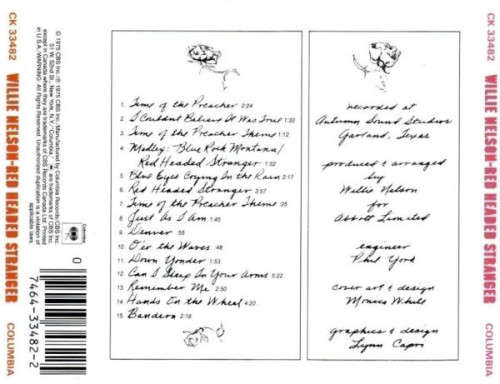 CK 33482
WILLIE NELSON-RED HEADED STRANGER
COLUMBIA
© 1975 CBS Inc. ℗ 1975 CBS Inc. Manufactured by Columbia Records/CBS Inc.
51 W. 52nd St., New York, N.Y. "Columbia," are trademarks of CBS Inc.
except in Canada where they are trademarks of CBS Records Canada Ltd. Printed
in U.S.A. WARNING: All Rights Reserved. Unauthorized duplication is a violation of
applicable laws.
Columbia
0
7464-33482-2
1. Time of the Preacher 2:24
2. I Couldn't Believe It Was True 1:32
3. Time of the Preacher Theme 1:12
4. Medley: Blue Rock Montana/
Red Headed Stranger 1:32
5. Blue Eyes Crying In the Rain 2:17
6. Red Headed Stranger 3:57
7. Time of the Preacher Theme :25
8. Just As I Am 1:45
9. Denver :55
10. O'er the Waves :48
11. Down Yonder 1:53
12. Can I Sleep In Your Arms 5:22
13. Remember Me 2:50
14. Hands On the Wheel 4:20
15. Bandera 2:18
recorded at
Autumn Sound Studios
Garland, Texas
produced & arranged
by
Willie Nelson
for
Abbott Limited
engineer
Phil York
cover art & design
Monica White
graphics & design
Lynn Capri
CK 33482
WILLIE NELSON-RED HEADED STRANGER
COLUMBIA